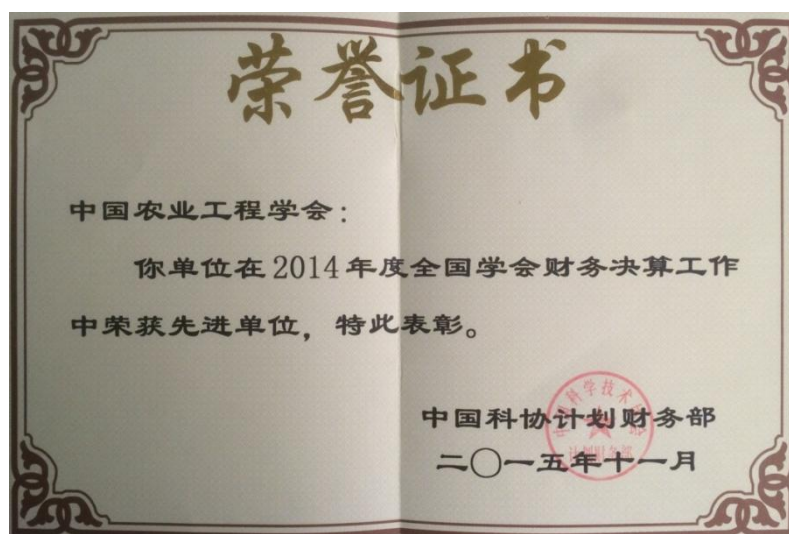 荣誉证书
中国农业工程学会：
你单位在2014年度全国学会财务决算工作
中荣获先进单位，特此表彰。
中国科学技术协会
计划财务部
中国科协计划财务部
二〇一五年十一月